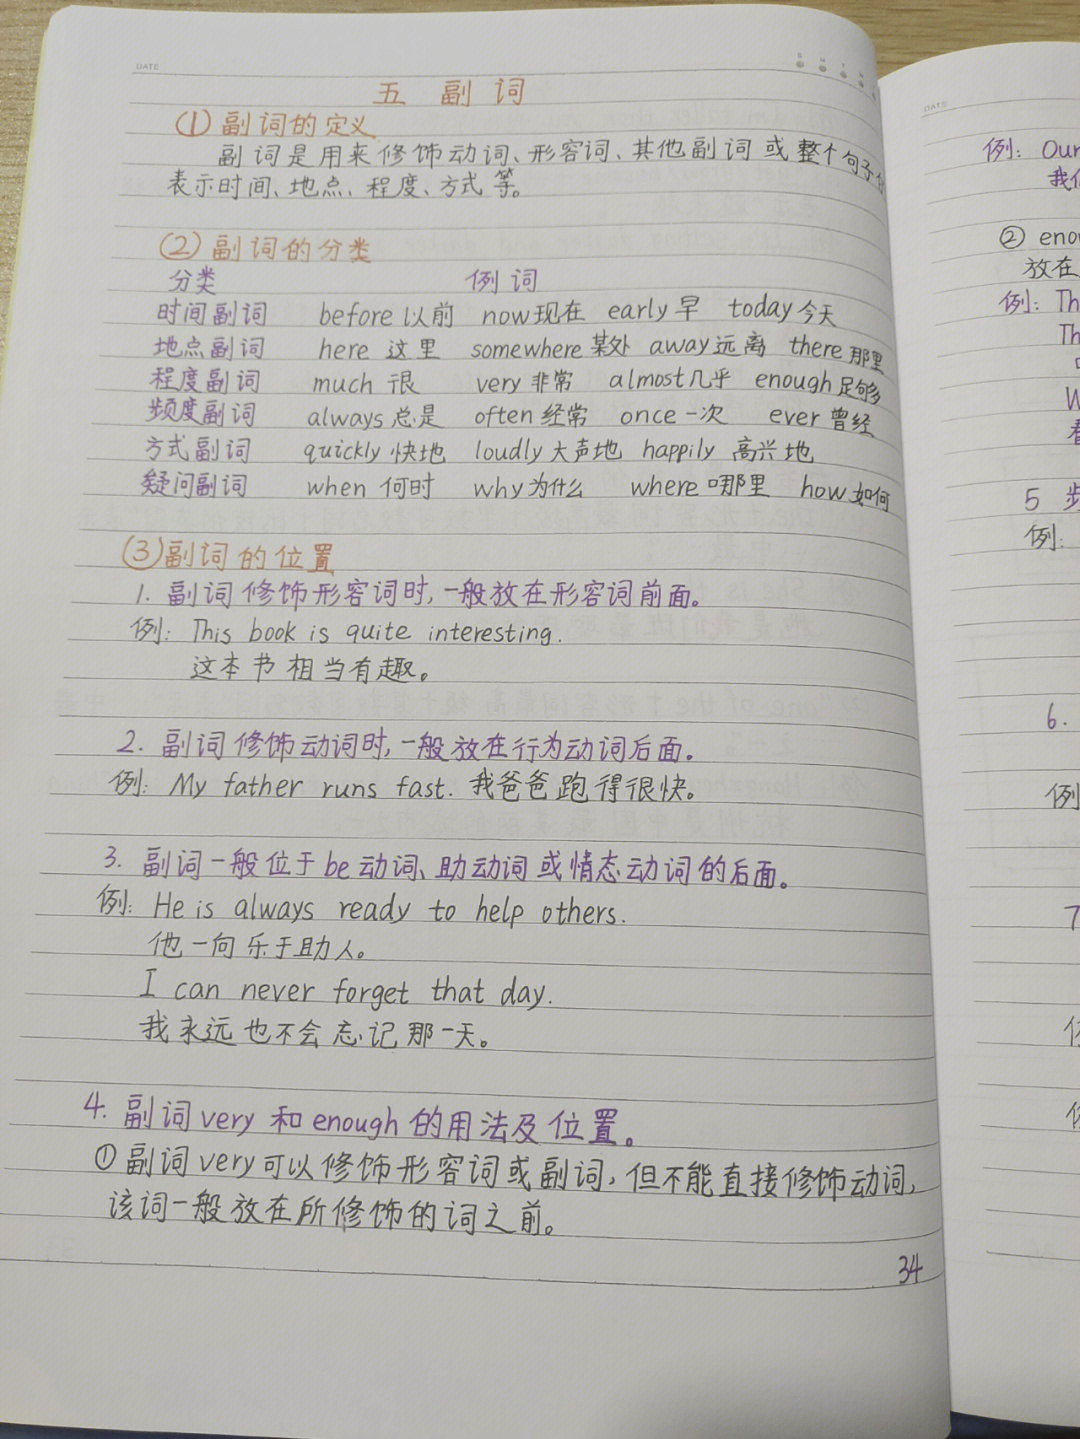 DATE
五 副词
(1) 副词的定义
副词是用来修饰动词、形容词、其他副词或整个句子
表示时间、地点、程度、方式等。
(2) 副词的分类
分类 例词
时间副词 before 以前 now 现在 early 早 today 今天
地点副词 here 这里 somewhere 某处 away 远离 there 那里
程度副词 much 很 very 非常 almost 几乎 enough 足够
频度副词 always 总是 often 经常 once 一次 ever 曾经
方式副词 quickly 快地 loudly 大声地 happily 高兴地
疑问副词 when 何时 why 为什么 where 哪里 how 如何
(3) 副词的位置
1. 副词修饰形容词时,一般放在形容词前面。
例: This book is quite interesting.
这本书相当有趣。
2. 副词修饰动词时,一般放在行为动词后面。
例: My father runs fast. 我爸爸跑得很快。
3. 副词一般位于be动词、助动词或情态动词的后面。
例: He is always ready to help others.
他一向乐于助人。
I can never forget that day.
我永远也不会忘记那一天。
4. 副词very和enough的用法及位置。
①副词very可以修饰形容词或副词,但不能直接修饰动词,
该词一般放在所修饰的词之前。
34
DATE
例: Our
我
②
放在
例: Th
Th
W
5
例:
6.
例
7